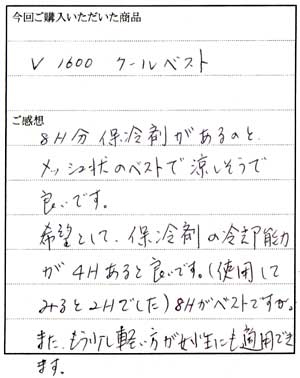 今回ご購入いただいた商品
V1600 クールベスト
ご感想
8H分保冷剤があるのと、
メッシュ状のベストで涼しそうで
良いです。
希望として、保冷剤の冷却能力
が4Hあると良いです。(使用して
みると2Hでした)8Hがベストですが。
また、もう少し軽い方が女性にも適用でき
ます。